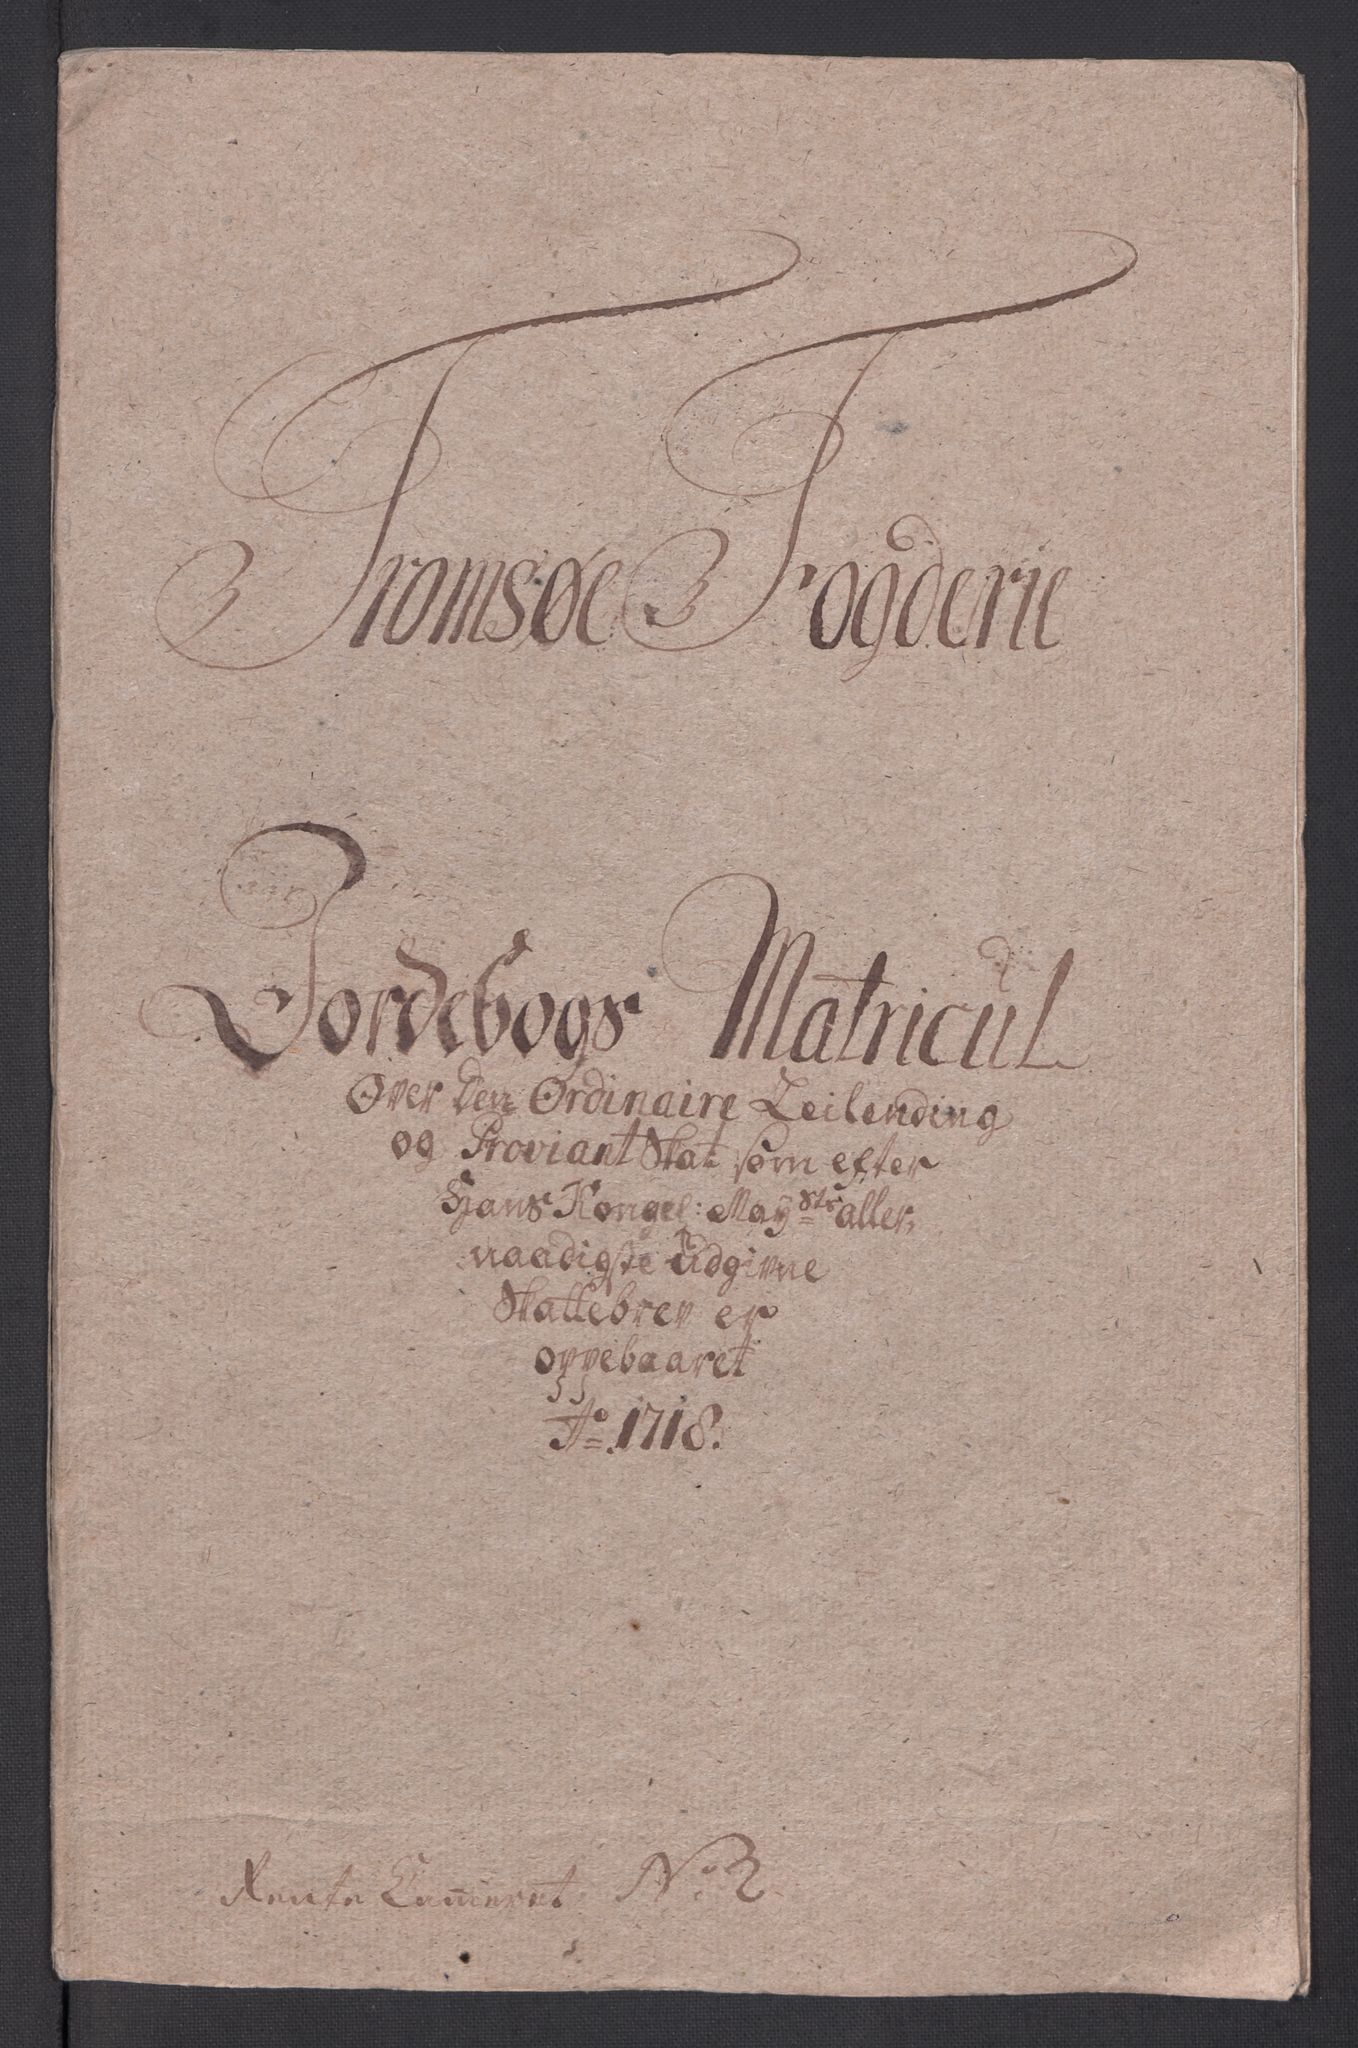 Tromsøe Fogderie
Jordebogs Matricul
Over den Ordinaire Leilending
og Proviant Skat som efter
Hans Kongel: Mayˢᵗˢ aller,
naadigste Udgivne
Skattebrev er
oppebaaret
Aº 1718.
Rente Cameret Nº 2